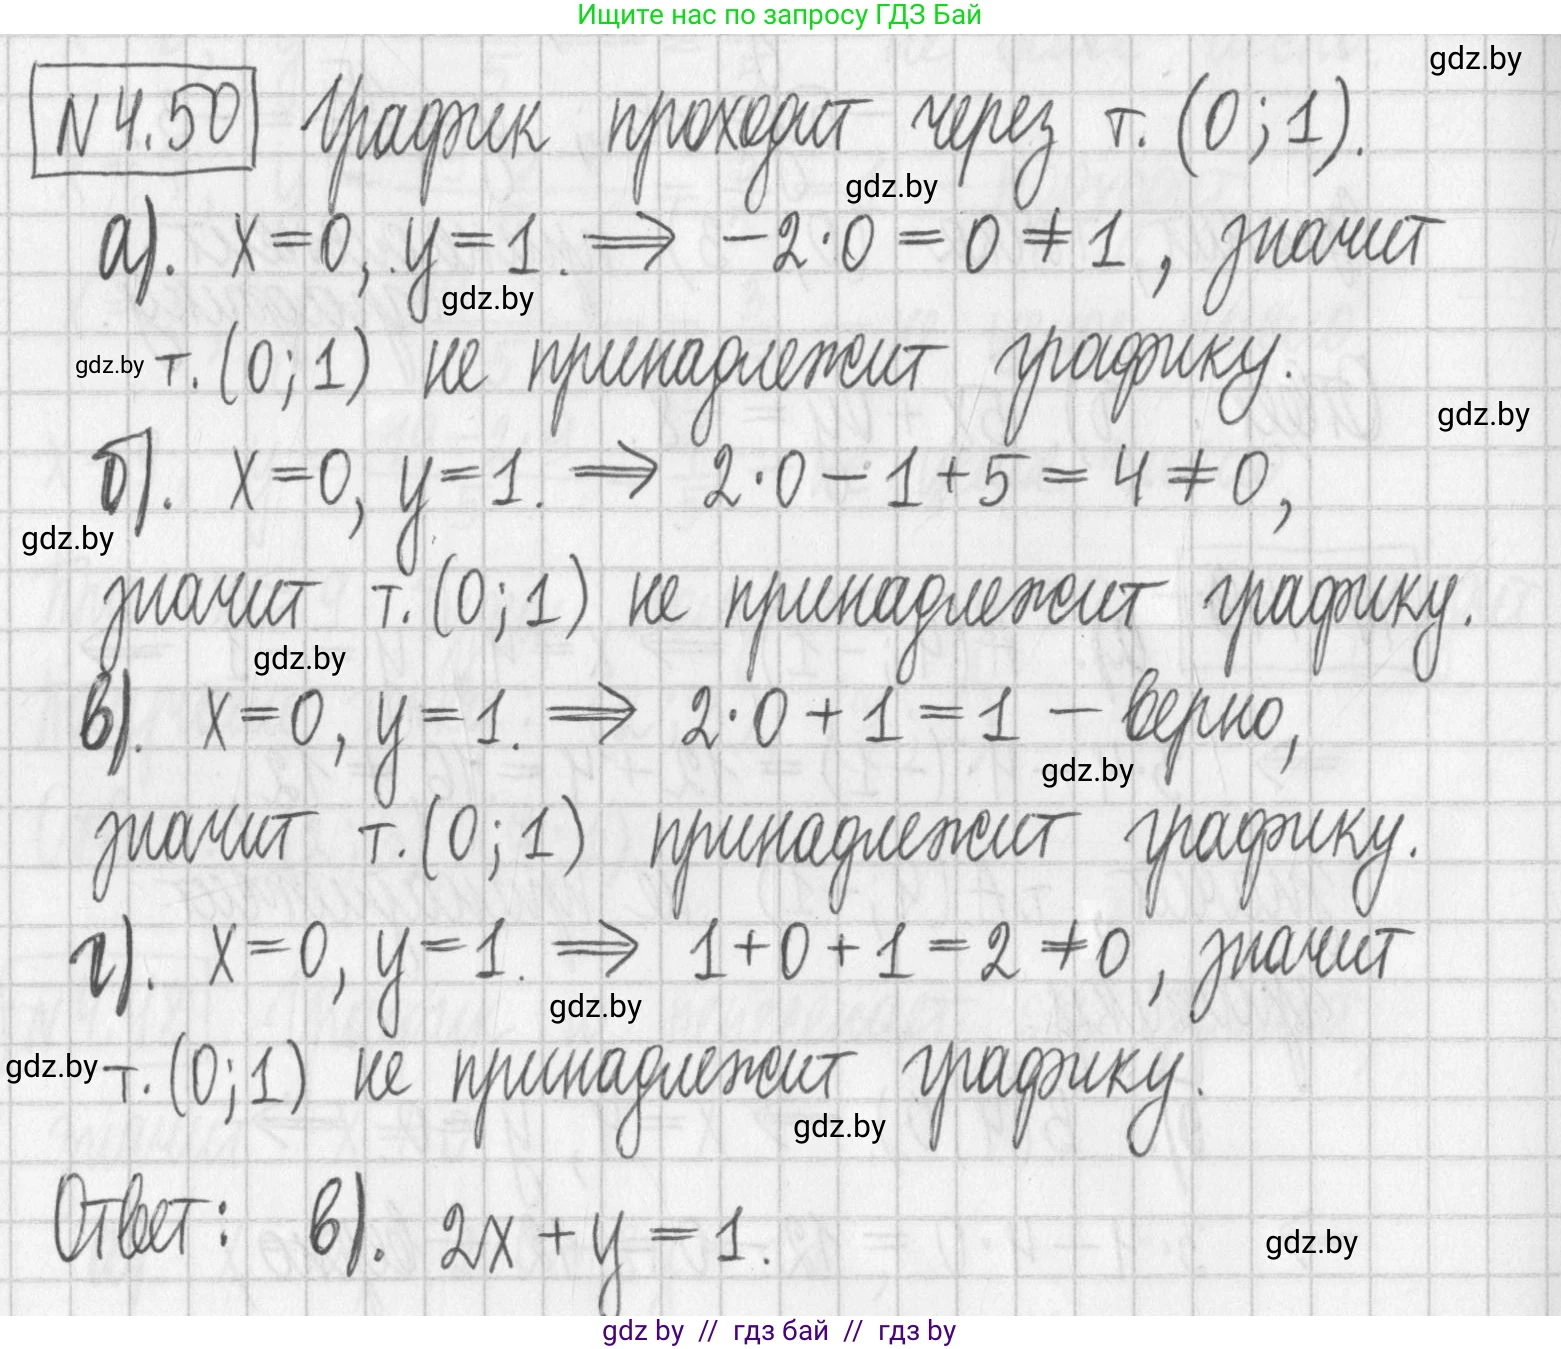 Ищите нас по запросу ГДЗ Бай
gdz.by
№4.50 График проходит через т. (0;1).
gdz.by
а). x=0, y=1. ⟹ -2·0=0≠1, значит
gdz.by
gdz.by т.(0;1) не принадлежит графику.
gdz.by
б). x=0, y=1. ⟹ 2·0-1+5=4≠0,
gdz.by
значит т.(0;1) не принадлежит графику.
gdz.by
в). x=0, y=1. ⟹ 2·0+1=1 - верно,
gdz.by
значит т.(0;1) принадлежит графику.
г). x=0, y=1. ⟹ 1+0+1=2≠0, значит
gdz.by
gdz.by т.(0;1) не принадлежит графику.
gdz.by
Ответ: в). 2x+y=1.
gdz.by
gdz by // гдз бай // гдз by